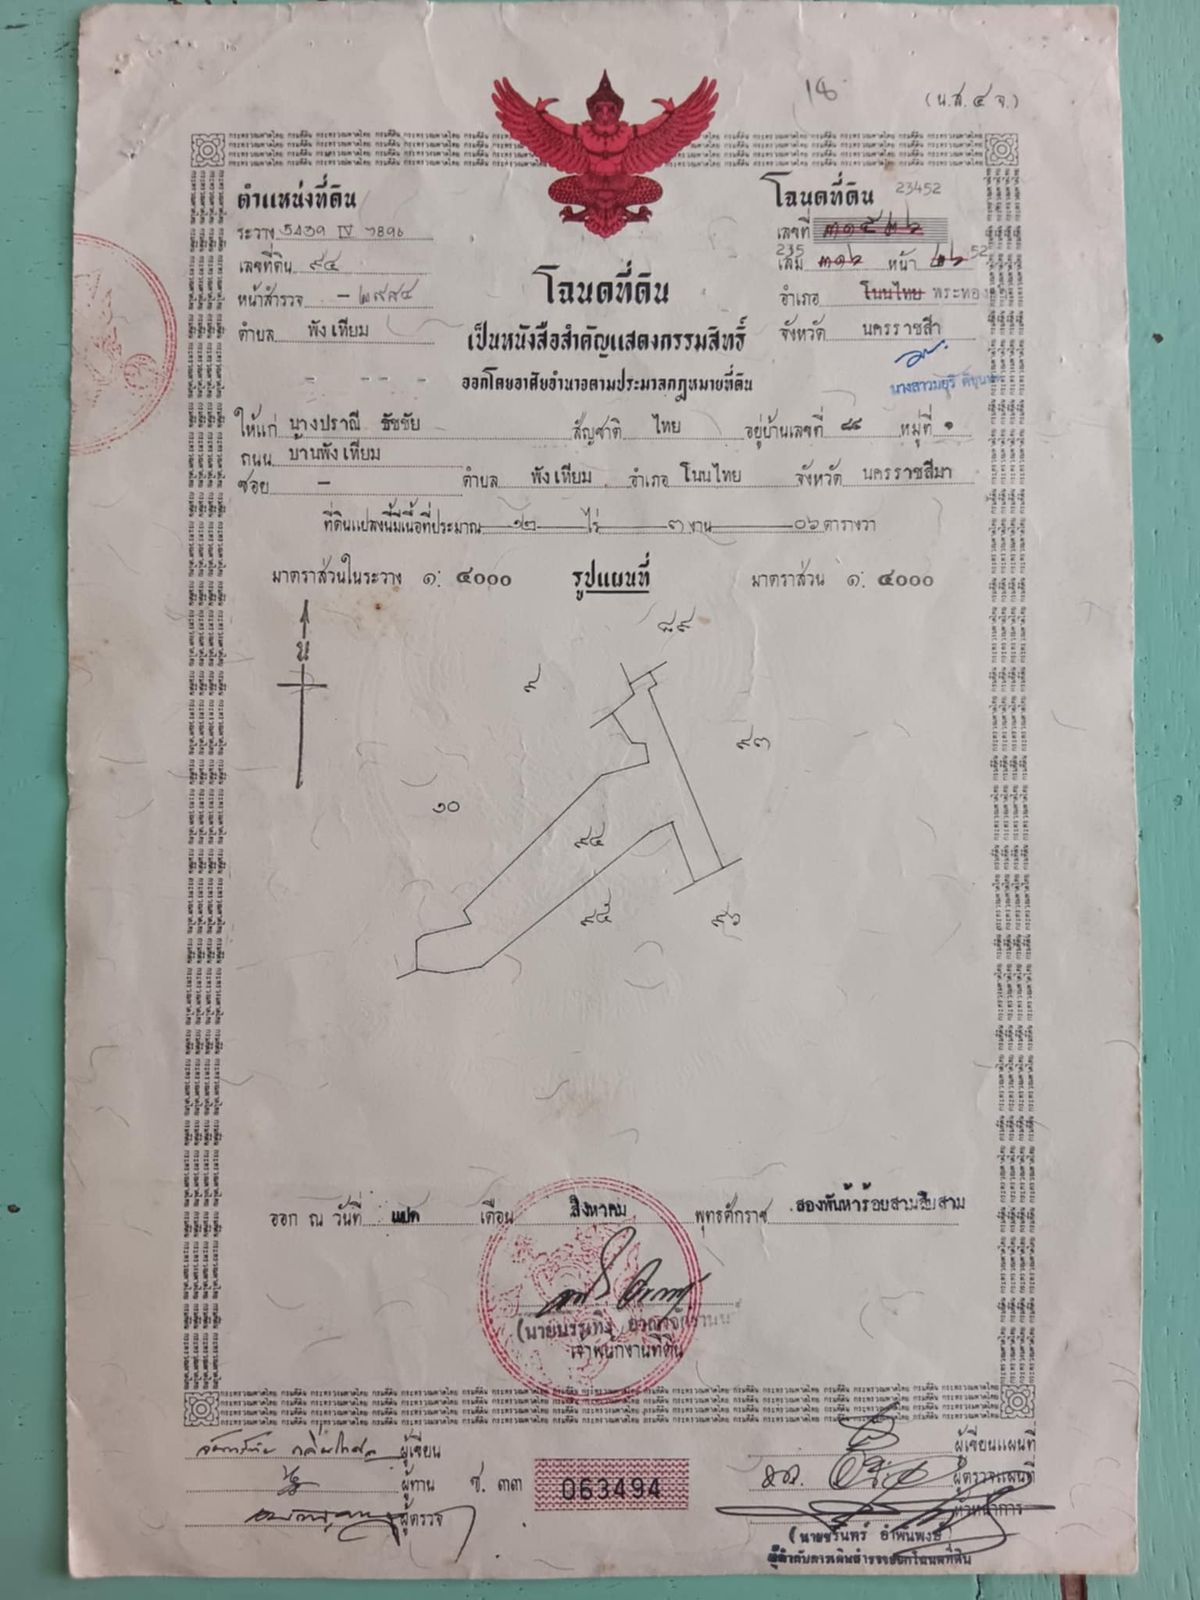 18
(น.ส.๔ จ.)
ตำแหน่งที่ดิน
โฉนดที่ดิน 23452
ระวาง 5439 IV
เลขที่ ๓๑๕๒๖
เลขที่ดิน ๙๔
235 52
เล่ม ๓๑๖ หน้า ๒๖
หน้าสำรวจ - ๒๙๙๔
โฉนดที่ดิน
อำเภอ โนนไทย พระทอง
ตำบล พังเทียม
เป็นหนังสือสำคัญแสดงกรรมสิทธิ์
จังหวัด นครราชสีมา
ออกโดยอาศัยอำนาจตามประมวลกฎหมายที่ดิน
นางสาวมยุรี
ให้แก่ นางปราณี ธัชชัย สัญชาติ ไทย อยู่บ้านเลขที่ ๘๘ หมู่ที่ ๑
ถนน บ้านพังเทียม
ซอย - ตำบล พังเทียม อำเภอ โนนไทย จังหวัด นครราชสีมา
ที่ดินแปลงนี้มีเนื้อที่ประมาณ ๑๒ ไร่ ๓ งาน ๐๖ ตารางวา
มาตราส่วนในระวาง ๑: ๔๐๐๐ รูปแผนที่ มาตราส่วน ๑: ๔๐๐๐
น
๘๙
๙๓
๑๐
๙๔
๙๕
๓๖
ออก ณ วันที่ แปด เดือน สิงหาคม พุทธศักราช สองพันห้าร้อยสามสิบสาม
เจ้าพนักงานที่ดิน
ผู้เขียน
ผู้เขียนแผนที่
ผู้ทาน ซ. ๓๓ 063494
ผู้ตรวจแผนที่
ผู้ตรวจ
หัวหน้าการ
(นายชรินทร์ อำพันพงษ์)
ผู้กำกับการเดินสำรวจออกโฉนดที่ดิน